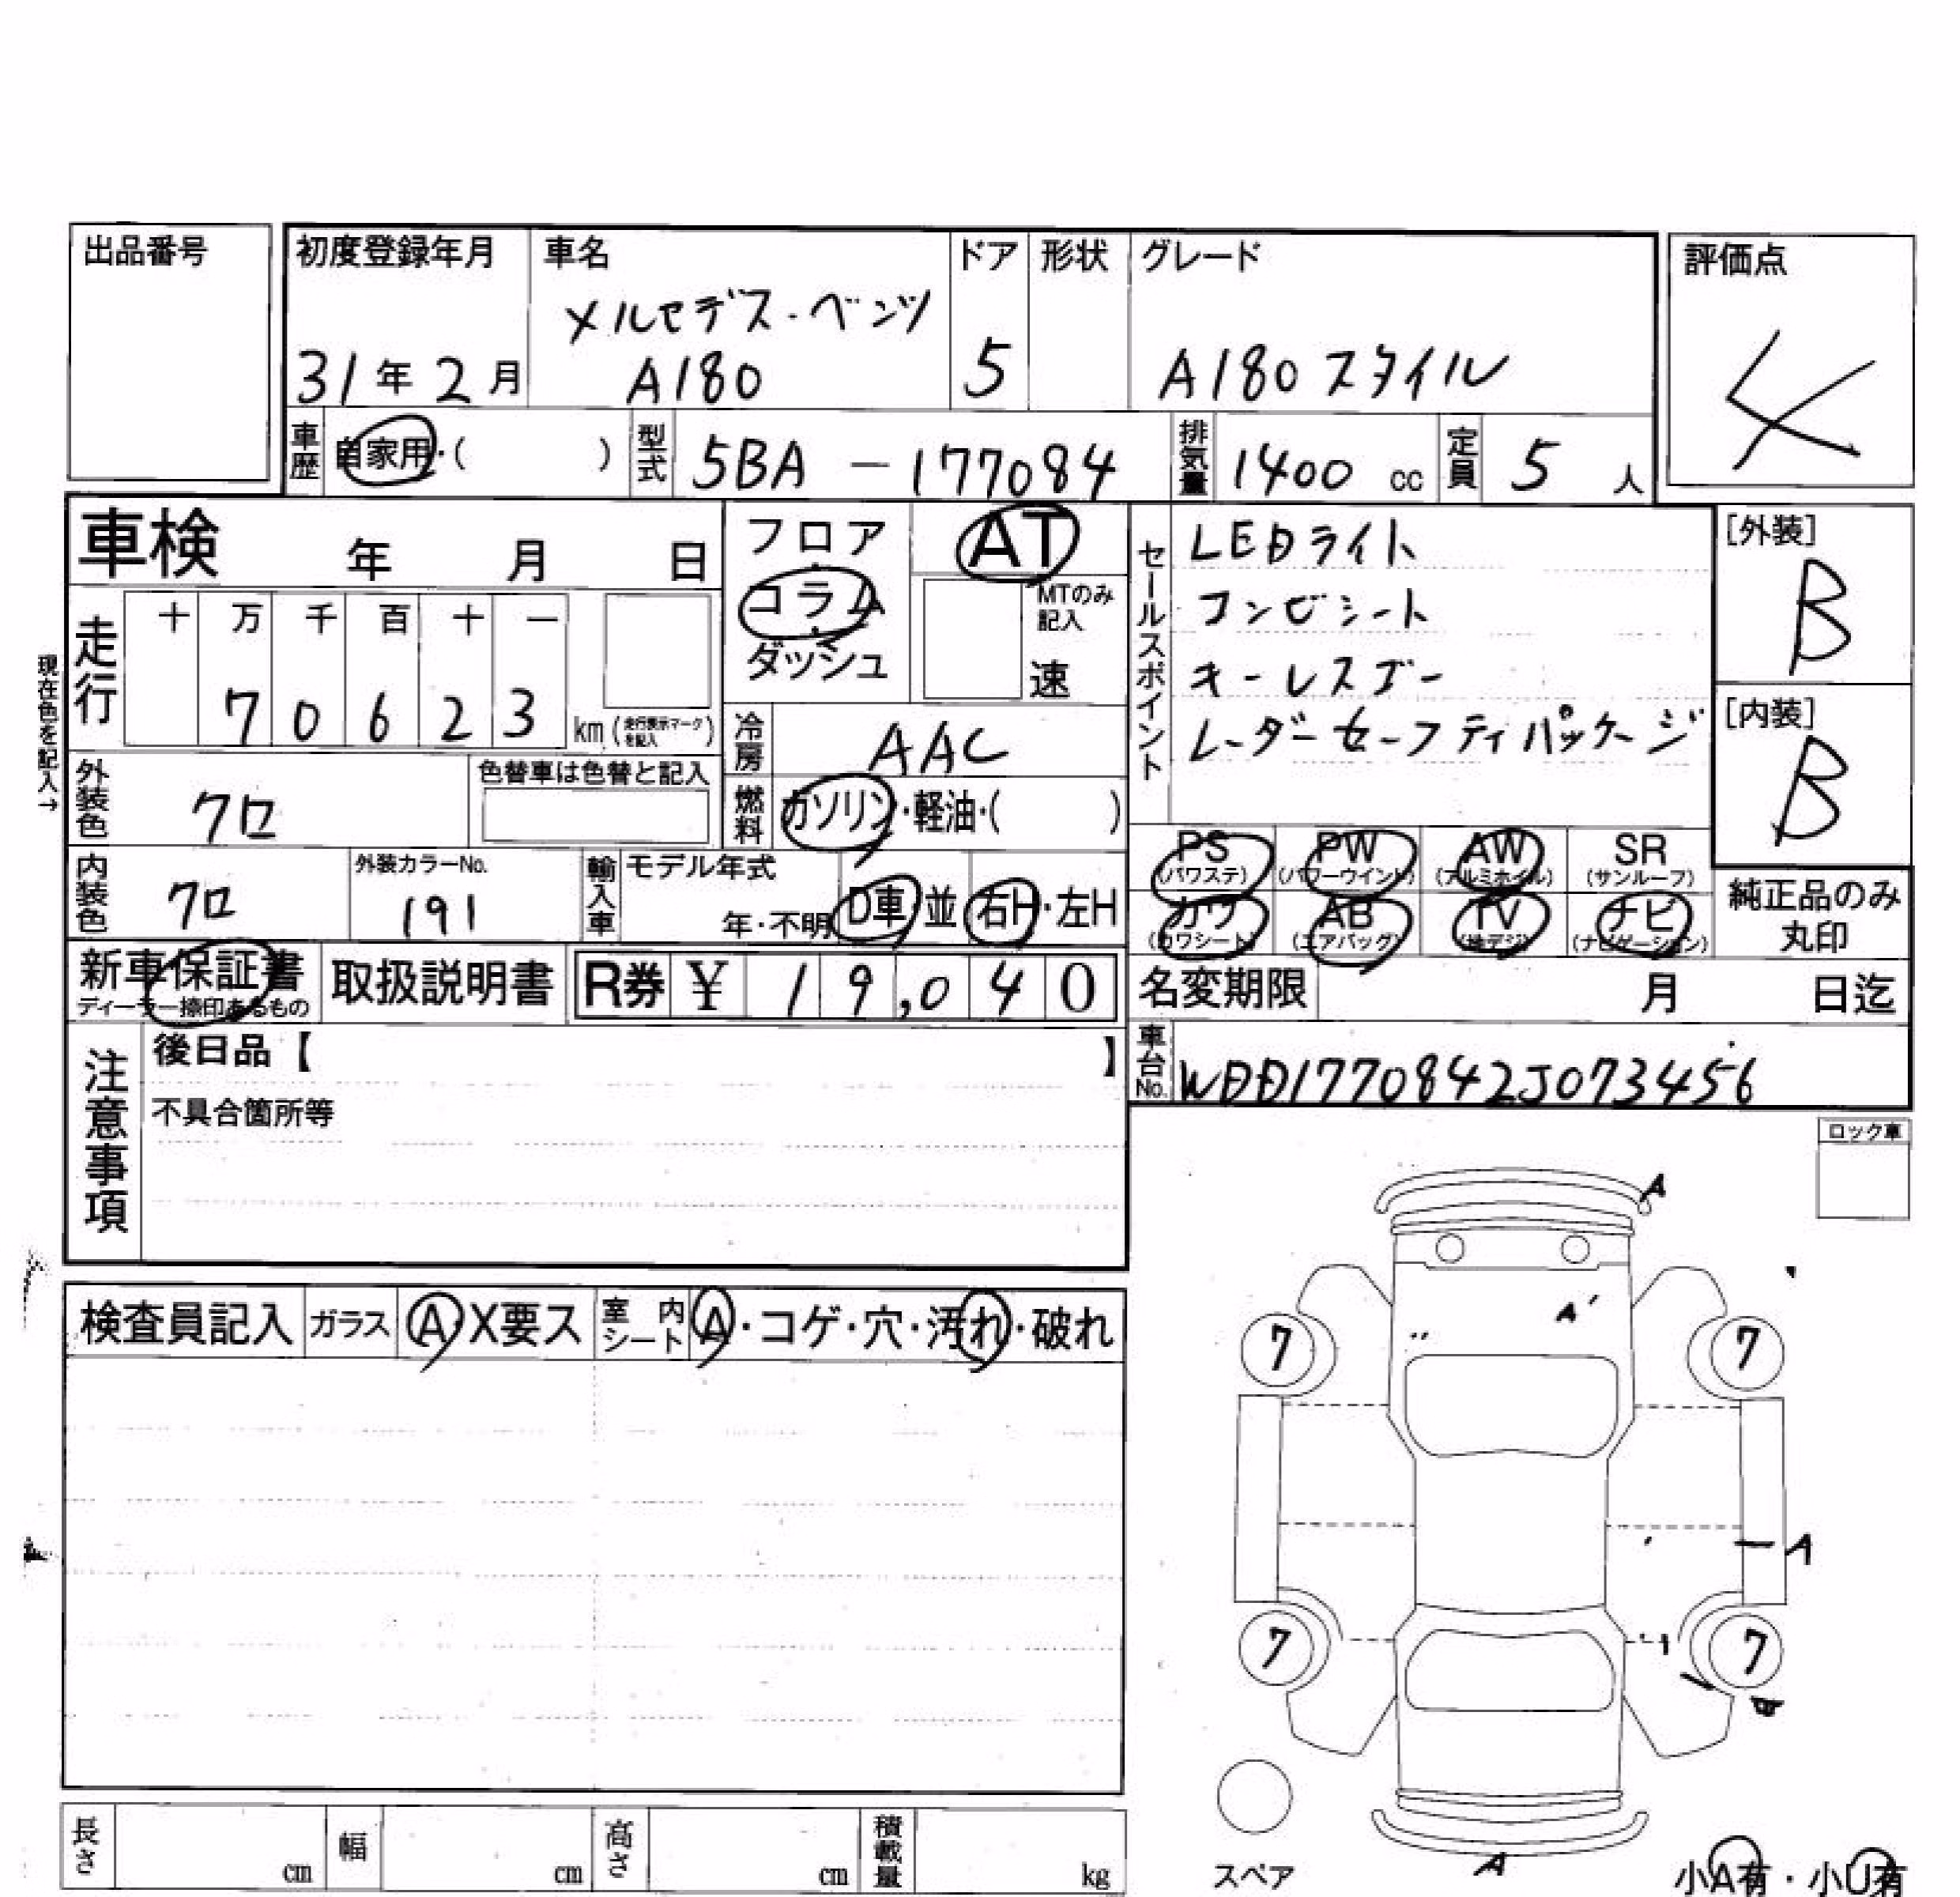 出品番号
初度登録年月 車名 ドア 形状 グレード 評価点
メルセデス・ベンツ
31年2月 A180 5 A180スタイル 4
車歴 自家用・( ) 型式 5BA-177084 排気量 1400 cc 定員 5 人
車検 年 月 日
フロア・コラム・ダッシュ
AT
MTのみ記入
速
セールスポイント
LEDライト
コンビシート
キーレスゴー
レーダーセーフティパッケージ
[外装]
B
[内装]
B
現在色を記入→
走行 十 万 千 百 十 一
70623 km (走行表示マークを記入)
冷房 AAC
外装色 クロ 色替車は色替と記入
燃料 ガソリン・軽油・( )
内装色 クロ 外装カラーNo. 191
輸入車 モデル年式 年・不明 D車 並 右H・左H
PS (パワステ) PW (パワーウインド) AW (アルミホイル) SR (サンルーフ)
カワ (カワシート) AB (エアバッグ) TV (地デジ) ナビ (ナビゲーション)
純正品のみ丸印
新車保証書 ディーラー捺印あるもの
取扱説明書
R券 ¥ 19,040
名変期限 月 日迄
車台No. WDD1770842J073456
注意事項
後日品【 】
不具合箇所等
ロック車
検査員記入 ガラス A・X要ス 室内シート A・コゲ・穴・汚れ・破れ
A
A'
7 7
A
7 7
A
スペア
小A有・小U有
長さ cm 幅 cm 高さ cm 積載量 kg